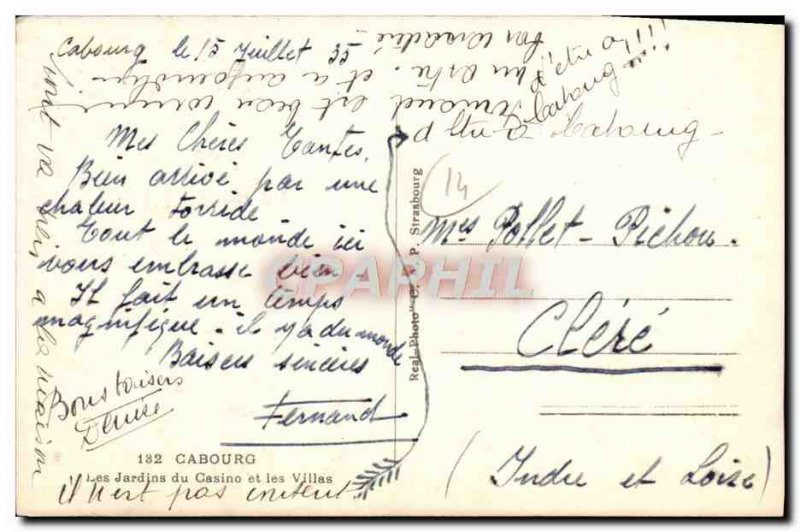 Cabourg le 15 Juillet 35
Mes Chères Tantes,
Bien arrivé par une
chaleur Torride
Tout le monde ici
vous embrasse bien -
Il fait un temps
magnifique - il y a du monde
Baisers sincères
Fernand
Bons baisers
Denise
tout va bien à la maison
Fernand est bien
d'être à Cabourg -
d'être à
Cabourg
!!!!
il n'est pas content
132 CABOURG
Les Jardins du Casino et les Villas
Real-Photo C. A. P. Strasbourg
CPAPHIL
14
Mes Pollet - Pichou.
Cléré
(Indre et Loire)